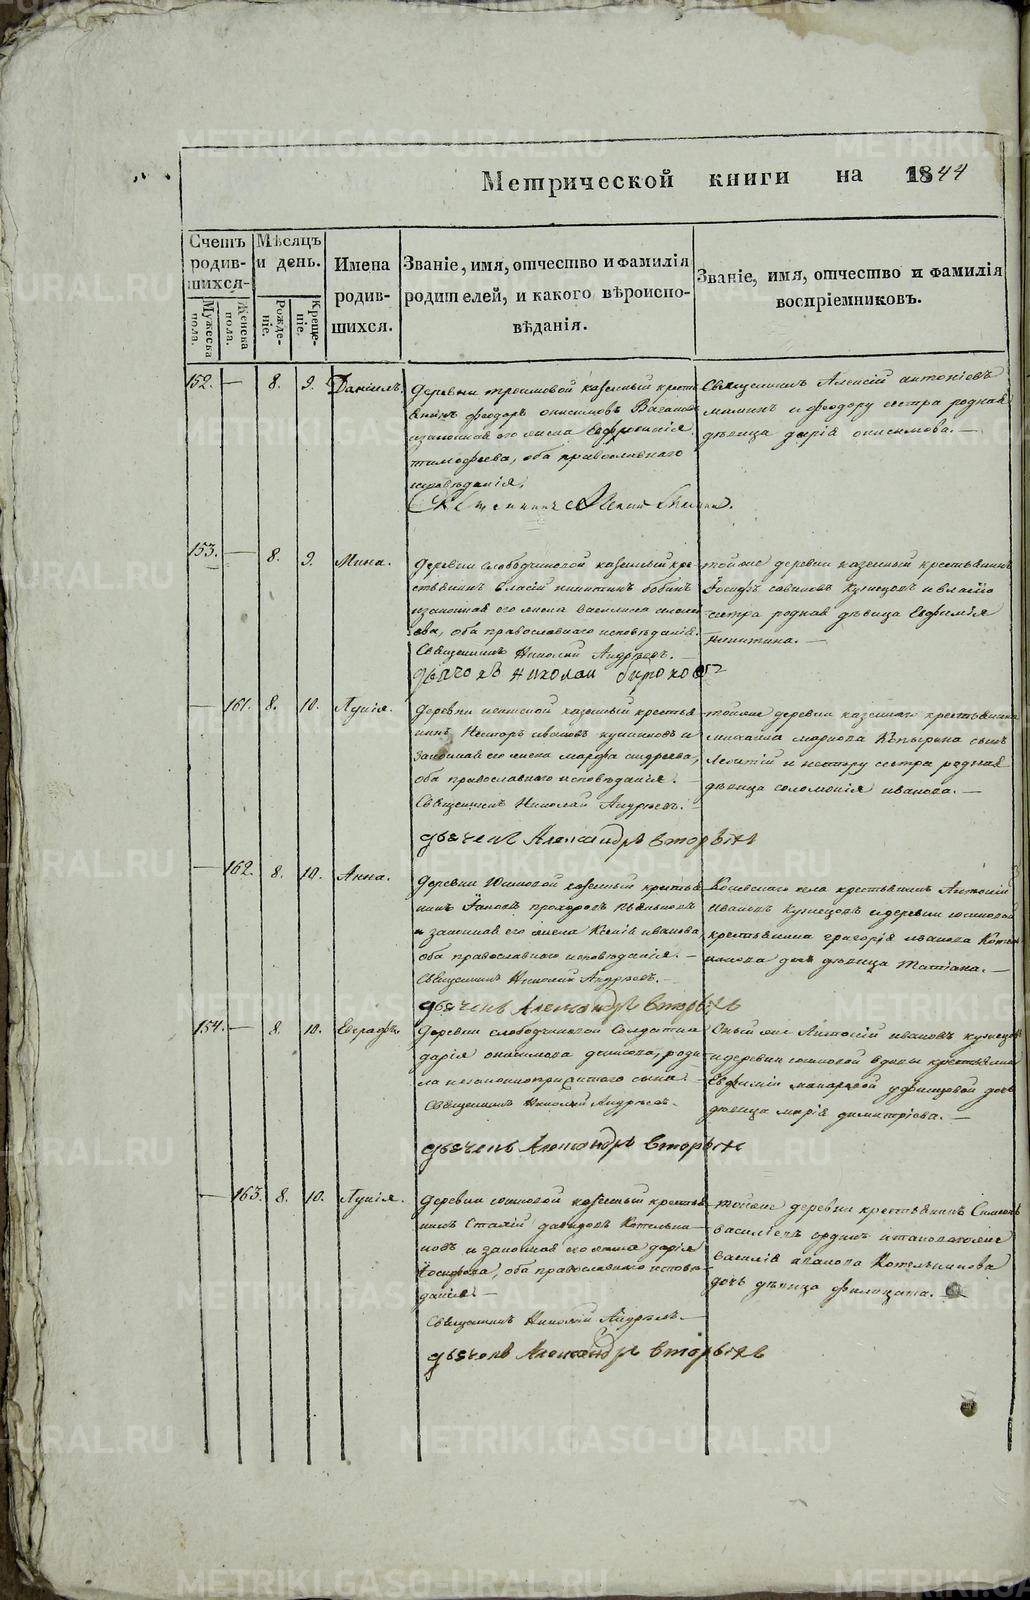 Метрической книги на 1844
Счетъ родив-шихся.
Мужеска пола.
Женска пола.
Мѣсяцъ и день.
Рожде-ніе.
Креще-ніе.
Имена родив-шихся.
Званіе, имя, отчество и фамилія
родителей, и какого вѣроиспо-
вѣданія.
Званіе, имя, отчество и фамилія
воспріемниковъ.
152. — 8. 9. Даніилъ.
Деревни казенный кресть
янинъ Феодоръ Онисимовъ
законная его жена Евфросинія
Тимофеева, оба православнаго
исповѣданія.
Священникъ Алексій
Священникъ Алексій Антоніевъ
и Феодору сестра родная
дѣвица Дарія Онисимова. —
153. — 8. 9. Мина.
Деревни Слободчиковой казенный кре-
стьянинъ Власій Никитинъ Бобинъ
законная его жена Василиса
ева, оба православнаго исповѣданія.
Священникъ Николай Андреевъ. —
дьячокъ Николай Бирюковъ
тойже деревни казенный крестьянинъ
Іосифъ Савиновъ Кузнецовъ и Власію
сестра родная дѣвица Евфимія
Никитина. —
— 161. 8. 10. Лукія.
Деревни казенный крестья
нинъ Несторъ Ивановъ и
законная его жена Марфа Андреева,
оба православнаго исповѣданія. —
Священникъ Николай Андреевъ. —
дьячекъ Александръ Вторыхъ
тойже деревни казеннаго крестьянина
Михаила Маркова сынъ
Леонтій и Нестору сестра родная
дѣвица Соломонія Иванова. —
— 162. 8. 10. Анна.
Деревни Юшковой казенный крестья
нинъ Прохоровъ
и законная его жена Ксенія Иванова,
оба православнаго исповѣданія. —
Священникъ Николай Андреевъ. —
дьячекъ Александръ Вторыхъ
села крестьянинъ Антоній
Ивановъ Кузнецовъ и деревни Юшковой
крестьянина Григорія Иванова Котель
никова дочь дѣвица Татіана. —
154. — 8. 10. Евграфъ.
Деревни Слободчиковой Солдатка
Дарія Онисимова, роди
ла незаконноприжитого сына. —
Священникъ Николай Андреевъ. —
дьячекъ Александръ Вторыхъ
Антоній Ивановъ Кузнецовъ
и деревни Юшковой вдовы крестьянки
Евфиміи Макаровой дочь
дѣвица Марія Димитріева. —
— 163. 8. 10. Лукія.
Деревни Юшковой казенный крестья
нинъ Давидовъ Котельни
ковъ и законная его жена Дарія
Іосифова, оба православнаго исповѣ
данія. —
Священникъ Николай Андреевъ. —
дьячекъ Александръ Вторыхъ
тойже деревни крестьянинъ Симеонъ
Василіевъ
Василія Иванова Котельникова
дочь дѣвица Филицата. —
METRIKI.GASO-URAL.RU